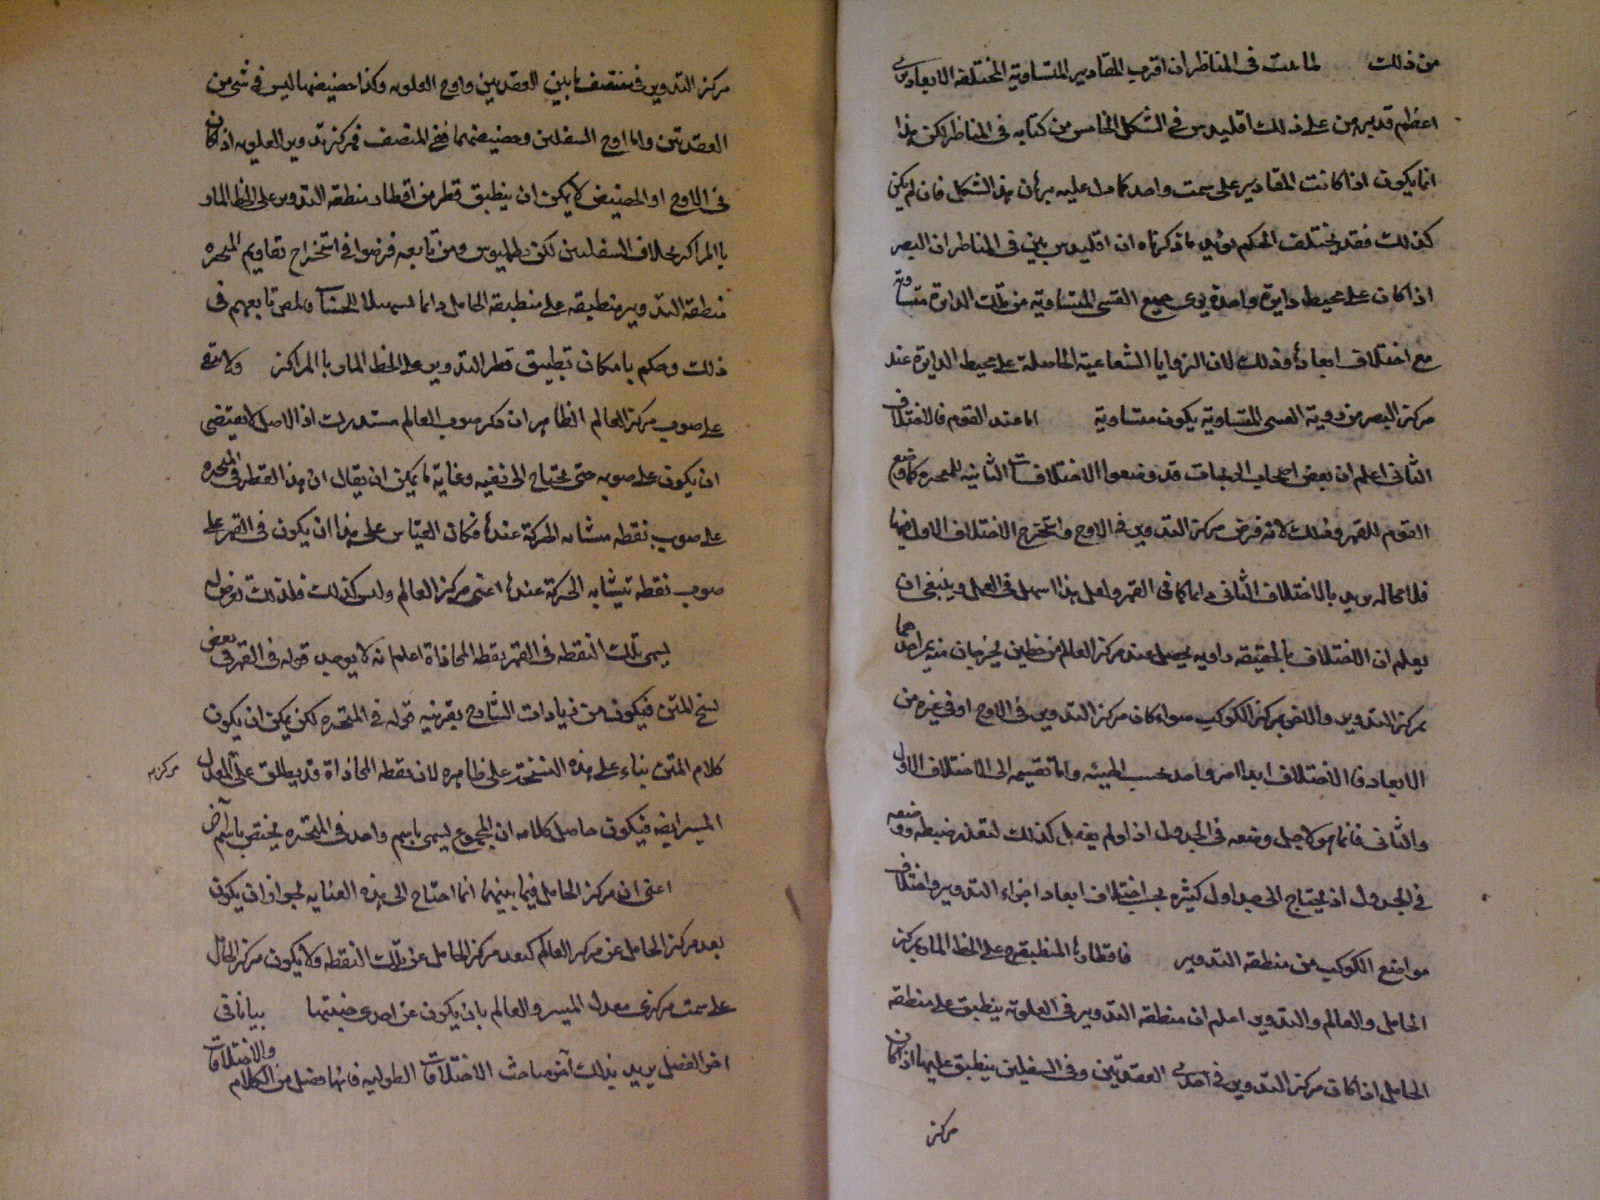 من ذلك لما ثبت في المناظر ان اقرب المقادير المتساوية المختلفة الابعاد يرى
اعظم قد برهن على ذلك اقليدس في الشكل الخامس من كتابه في المناظر لكن هذا
انما يكون اذا كانت المقادير على سمت واحد كما دل عليه برهان هذا الشكل فان لم يكن
كذلك فقد يختلف الحكم يؤيد ما ذكرناه ان اقليدس بين في المناظر ان البصر
اذا كان على محيط دايرة واحدة يرى جميع القسى المتساوية من تلك الدايرة متساوية
مع اختلاف ابعادها وذلك لان الزوايا الشعاعية الحاصلة على محيط الدايرة عند
مركز البصر من روية القسى المتساوية يكون متساوية اما عند القوم فالاختلاف
الثاني اعلم ان بعض اصحاب الزيجات قد وضعوا الاختلافات الثانية للمتحيرة كما وضع
القوم للقمر وذلك لانه فرض مركز التدوير في الاوج واستخرج الاختلاف الاول فيها
فلا محاله يزيد بالاختلاف الثاني دايما كما في القمر ولعل هذا اسهل في العمل وينبغي ان
يعلم ان الاختلاف بالحقيقة زاوية يحصل عند مركز العالم من خطين يخرجان منه يمر احدهما
بمركز التدوير والاخر بمركز الكوكب سواء كان مركز التدوير في الاوج او في غيره من
الابعاد فالاختلاف ابدا امر واحد بحسب الهيئة واما تقسيمه الى الاختلاف الاول
والثاني فانما هو لاجل وضعه في الجدول اذ لو لم يفعل كذلك لتعذر ضبطه ووضعه
في الجدول اذ يحتاج الى جداول كثيرة بحسب اختلاف ابعاد اجزاء التدوير واختلاف
مواضع الكوكب من منطقة التدوير فاقطارها المنطبقة على الخط المار بمركز
الحامل والعالم والتدوير اعلم ان منطقة التدوير في العلوية ينطبق على منطقة
الحامل اذا كان مركز التدوير في احدى العقدتين وفي السفليين ينطبق عليها اذا كان
مركز
مركز التدوير في منتصف ما بين العقدتين واوج العلوية وكذا حضيضها ليس في شئ من
العقدتين واما اوج السفليين وحضيضهما ففي المنتصف فمركز تدوير العلوية اذا كان
في الاوج او الحضيض لا يمكن ان ينطبق قطر من اقطار منطقة التدوير على الخط المار
بالمراكز بخلاف السفليين لكن بطلميوس ومن تابعه فرضوا في استخراج تقاويم المتحيرة
منطقة التدوير منطبقة على منطقة الحامل دايما تسهيلا للحساب والمص تابعهم في
ذلك وحكم بامكان تطبيق قطر التدوير على الخط المار بالمراكز ولا تبقى
على صوب مركز العالم الظاهر ان ذكر صوب العالم مستدرك اذ الاصل لا يقتضى
ان يكون على صوبه حتى يحتاج الى نفيه وغاية ما يمكن ان يقال ان هذا القطر في المتحيرة
على صوب نقطة متشابه الحركة عندها فكان القياس على هذا ان يكون في القمر على
صوب نقطة تتشابه الحركة عندها اعنى مركز العالم وليس كذلك فلذلك تعرض له
يسمى تلك النقطة في القمر نقطة المحاذاة اعلم انه لا يوجد قوله في القمر في بعض
نسخ المتن فيكون من زيادات الشارح بقرينة قوله في المتحيرة لكن يمكن ان يكون
كلام المتن بناء على هذه النسخة على ظاهره لان نقطة المحاذاة قد يطلق على المعدل مركز
المسير ايضا فيكون حاصل كلامه ان المجموع يسمى باسم واحد في المتحيرة يختص باسم آخر
اعنى ان مركز الحامل فيما بينهما انما احتاج الى هذه العناية لجواز ان يكون
بعد مركز الحامل عن مركز العالم كبعد مركز الحامل عن تلك النقطة ولا يكون مركز الحامل
على سمت مركزى معدل المسير والعالم بان يكون عن احدى جنبتيهما بيانا في
اخر الفصل يريد بذلك آخر مباحث الاختلافات الطولية فانها فصل من الكلام والاختلافات